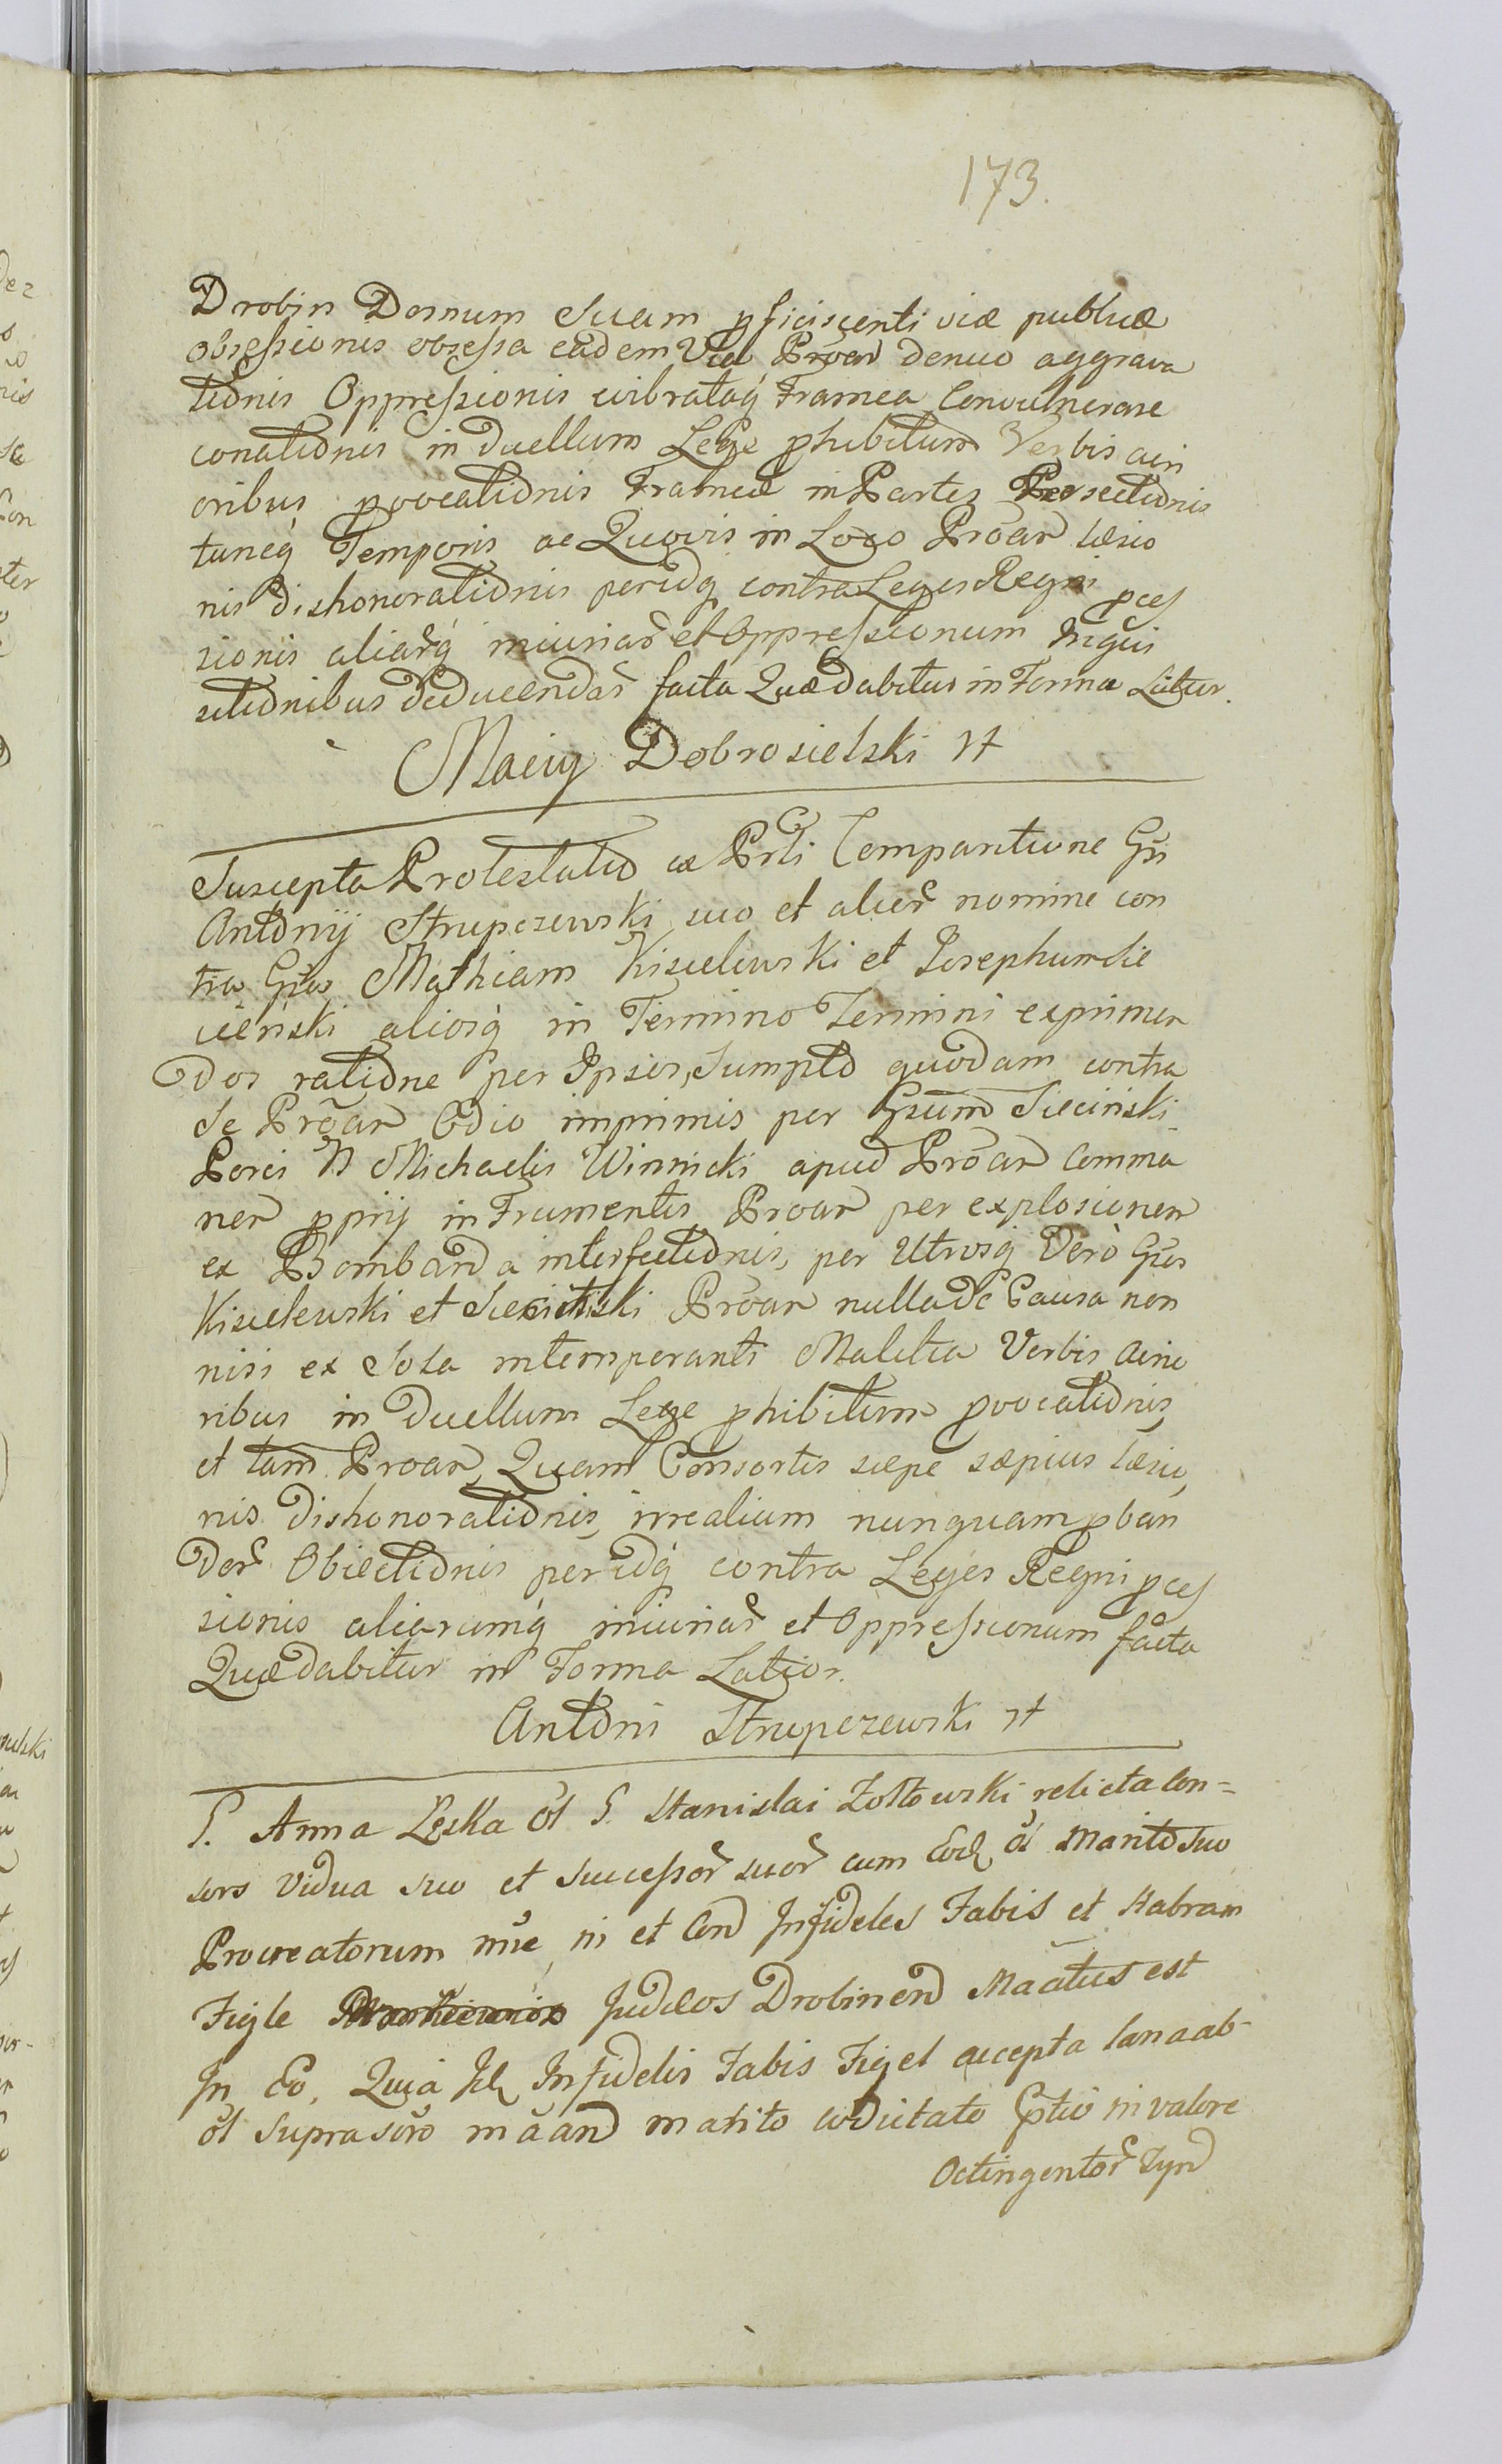 173.
Drobin Domum Suam pficiscenti viæ publicæ
obsessionis obsessa eadem Via Proãn denuo aggrava
tionis Oppressionis vibrataq Framea Convulnerare
conationis in duellum Lege phibitum Verbis ain
oribus pvocationis Frameæ in Partes Persectionis
tuncq Temporis ac Quovis in Loco Proãn læsio
nis dishonorationis peridq contra Leges Regni pces
sionis aliarq iniuriar et Oppressionum Inqui
sitionibus deducendar facta Quæ dabitur in Forma Latior.
Maciy Dobrosielski
Suscepta Protestatio ex Prti Comparitione Gsi
Antonij Strupczewski suo et alior nomine con
tra Gsos Mathiam Kisielewski et Josephum Sie
cieński aliosq in Termino Termini exprimen
dos ratione per Ipsos, Sumpto quodam contra
Se Proãn Odio imprimis per Gsum Sieciński
Porci N Michaelis Winnicki apud Proãn Comma
nen pprij in Frumentis Proãn per explosionem
ex Bombarda interfectionis, per Utrosq Vero Gsos
Kisielewski et Proãn nulla de Causa non
nisi ex Sola intemperanti Malitia Verbis aino
ribus in duellum Lege phibitum pvocationis,
et tam Proãn, Quam Consortis sæpe sæpius læsio,
nis dishonorationis, irrealium nunquam pban
dor Obiectionis peridq contra Leges Regni pces
sionis aliarumq iniuriar et Oppressionum facta
Quæ dabitur in Forma Latior.
Antoni Strupczewski
G. Anna Łęska ol G. Stanislai Zołtowski relicta Con-
sors Vidua suo et Successor suor cum Eod ol Marito suo
Procreatorum nne, in et Con Infideles Fabis et Habram
Figle Judæos Drobinen Maãtus est
In Eo, Quia Id Infidelis Fabis Figel accepta lana ab
ol suprascro mãan marito in valore
Octingentor Tyn